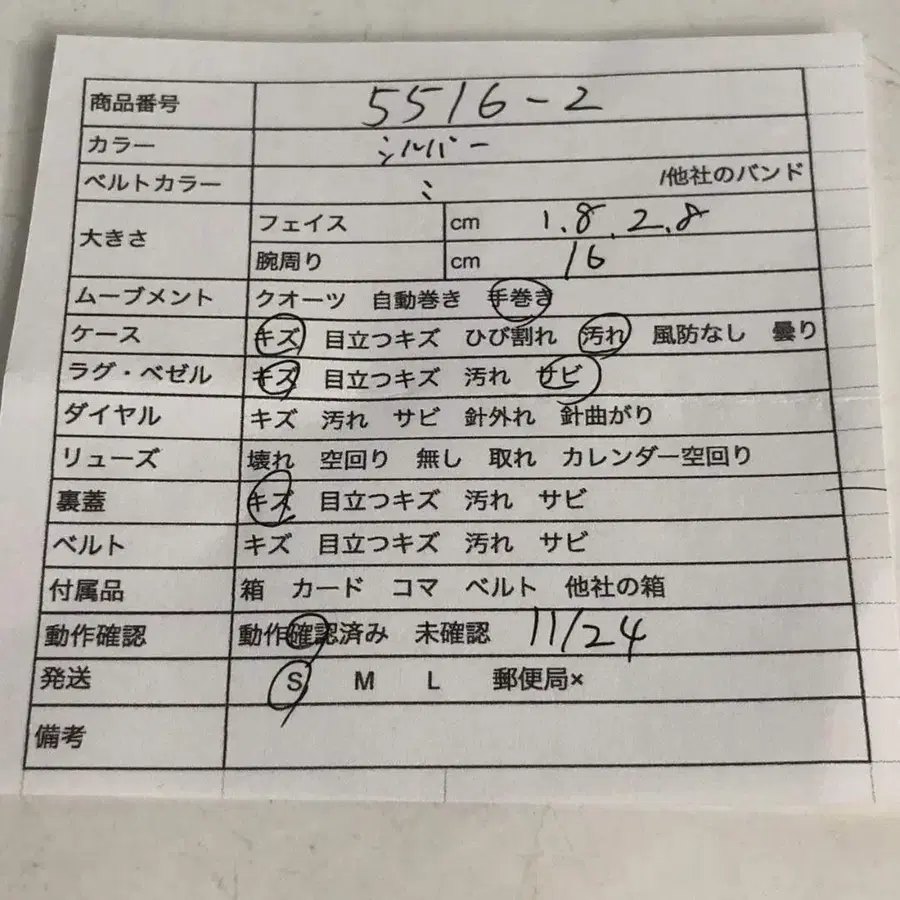 商品番号 5516-2
カラー シルバー
ベルトカラー 〃 /他社のバンド
大きさ フェイス cm 1.8.2.8
腕周り cm 16
ムーブメント クオーツ 自動巻き 手巻き
ケース キズ 目立つキズ ひび割れ 汚れ 風防なし 曇り
ラグ・ベゼル キズ 目立つキズ 汚れ サビ
ダイヤル キズ 汚れ サビ 針外れ 針曲がり
リューズ 壊れ 空回り 無し 取れ カレンダー空回り
裏蓋 キズ 目立つキズ 汚れ サビ
ベルト キズ 目立つキズ 汚れ サビ
付属品 箱 カード コマ ベルト 他社の箱
動作確認 動作確認済み 未確認 11/24
発送 S M L 郵便局×
備考